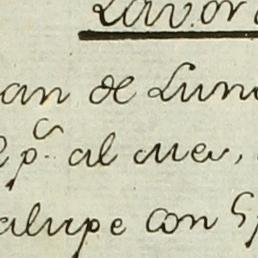 Lavor
an de Luni
p.c al mes,
alupe con 5p